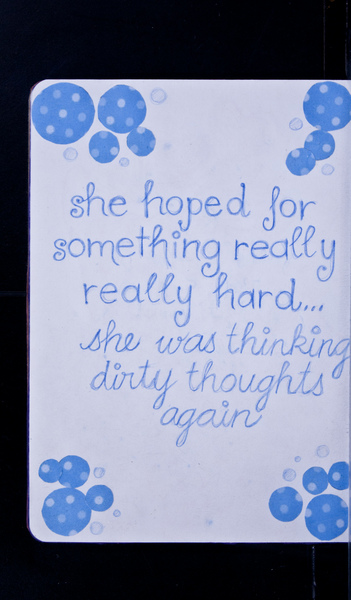 she hoped for
something really
really hard...
she was thinking
dirty thoughts
again